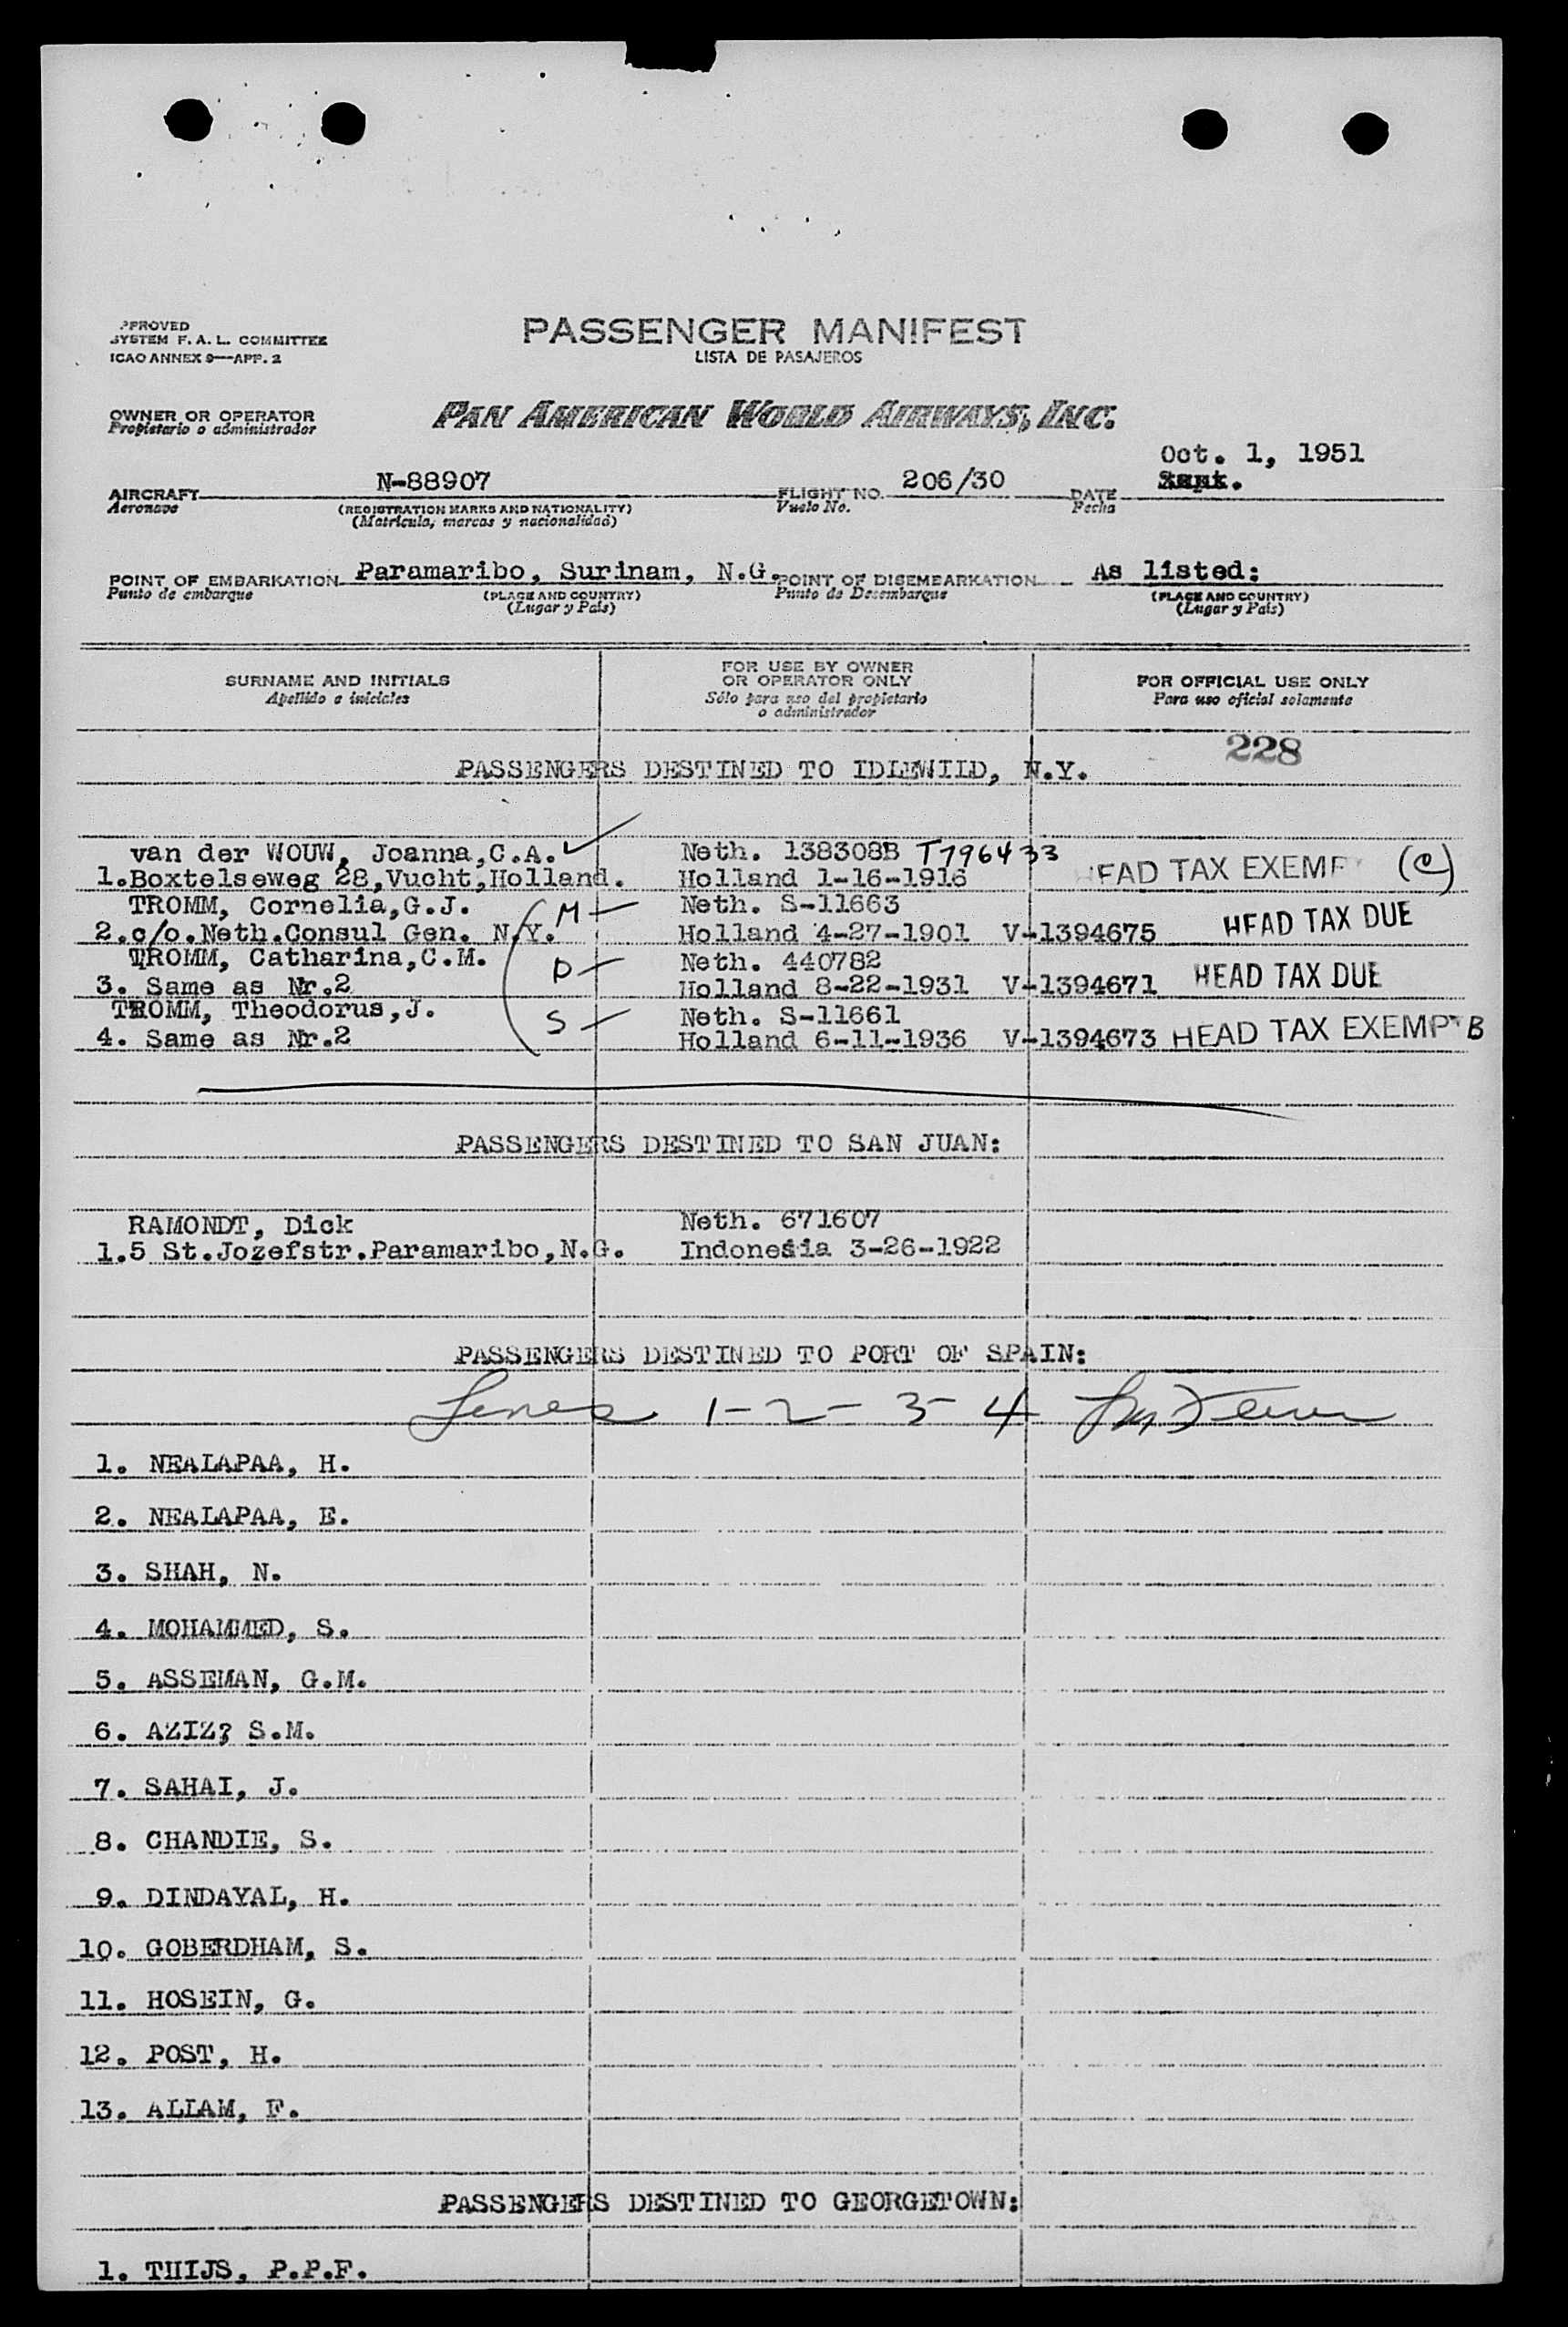 PPROVED
SYSTEM F. A. L. COMMITTEE
ICAO ANNEX 9—APP. 2
PASSENGER MANIFEST
LISTA DE PASAJEROS
OWNER OR OPERATOR
Propietario o administrador
PAN AMERICAN WORLD AIRWAYS, INC.
Oct. 1, 1951
Sept.
AIRCRAFT N-88907 FLIGHT NO. 206/30 DATE
Aeronave (REGISTRATION MARKS AND NATIONALITY) Vuelo No. Fecha
(Matricula, marcas y nacionalidad)
POINT OF EMBARKATION Paramaribo, Surinam, N.G. POINT OF DISEMBARKATION As listed:
Punto de embarque (PLACE AND COUNTRY) Punto de Desembarque (PLACE AND COUNTRY)
(Lugar y País) (Lugar y País)
SURNAME AND INITIALS
Apellido e iniciales
FOR USE BY OWNER
OR OPERATOR ONLY
Sólo para uso del propietario
o administrador
FOR OFFICIAL USE ONLY
Para uso oficial solamente
228
PASSENGERS DESTINED TO IDLEWILD, N.Y.
van der WOUW, Joanna,C.A. Neth. 138308B T796433
1.Boxtelseweg 28,Vucht,Holland. Holland 1-16-1916 HEAD TAX EXEMP (C)
TROMM, Cornelia,G.J. M Neth. S-11663
2.c/o.Neth.Consul Gen. N.Y. Holland 4-27-1901 V-1394675 HEAD TAX DUE
TROMM, Catharina,C.M. D Neth. 440782
3. Same as Nr.2 Holland 8-22-1931 V-1394671 HEAD TAX DUE
TROMM, Theodorus,J. S Neth. S-11661
4. Same as Nr.2 Holland 6-11-1936 V-1394673 HEAD TAX EXEMPT B
PASSENGERS DESTINED TO SAN JUAN:
RAMONDT, Dick Neth. 671607
1.5 St.Jozefstr.Paramaribo,N.G. Indonesia 3-26-1922
PASSENGERS DESTINED TO PORT OF SPAIN:
Lines 1-2-3-4
1. NEALAPAA, H.
2. NEALAPAA, E.
3. SHAH, N.
4. MOHAMMED, S.
5. ASSEMAN, G.M.
6. AZIZ? S.M.
7. SAHAI, J.
8. CHANDIE, S.
9. DINDAYAL, H.
10. GOBERDHAM, S.
11. HOSEIN, G.
12. POST, H.
13. ALLAM, F.
PASSENGERS DESTINED TO GEORGETOWN:
1. THIJS, P.P.F.